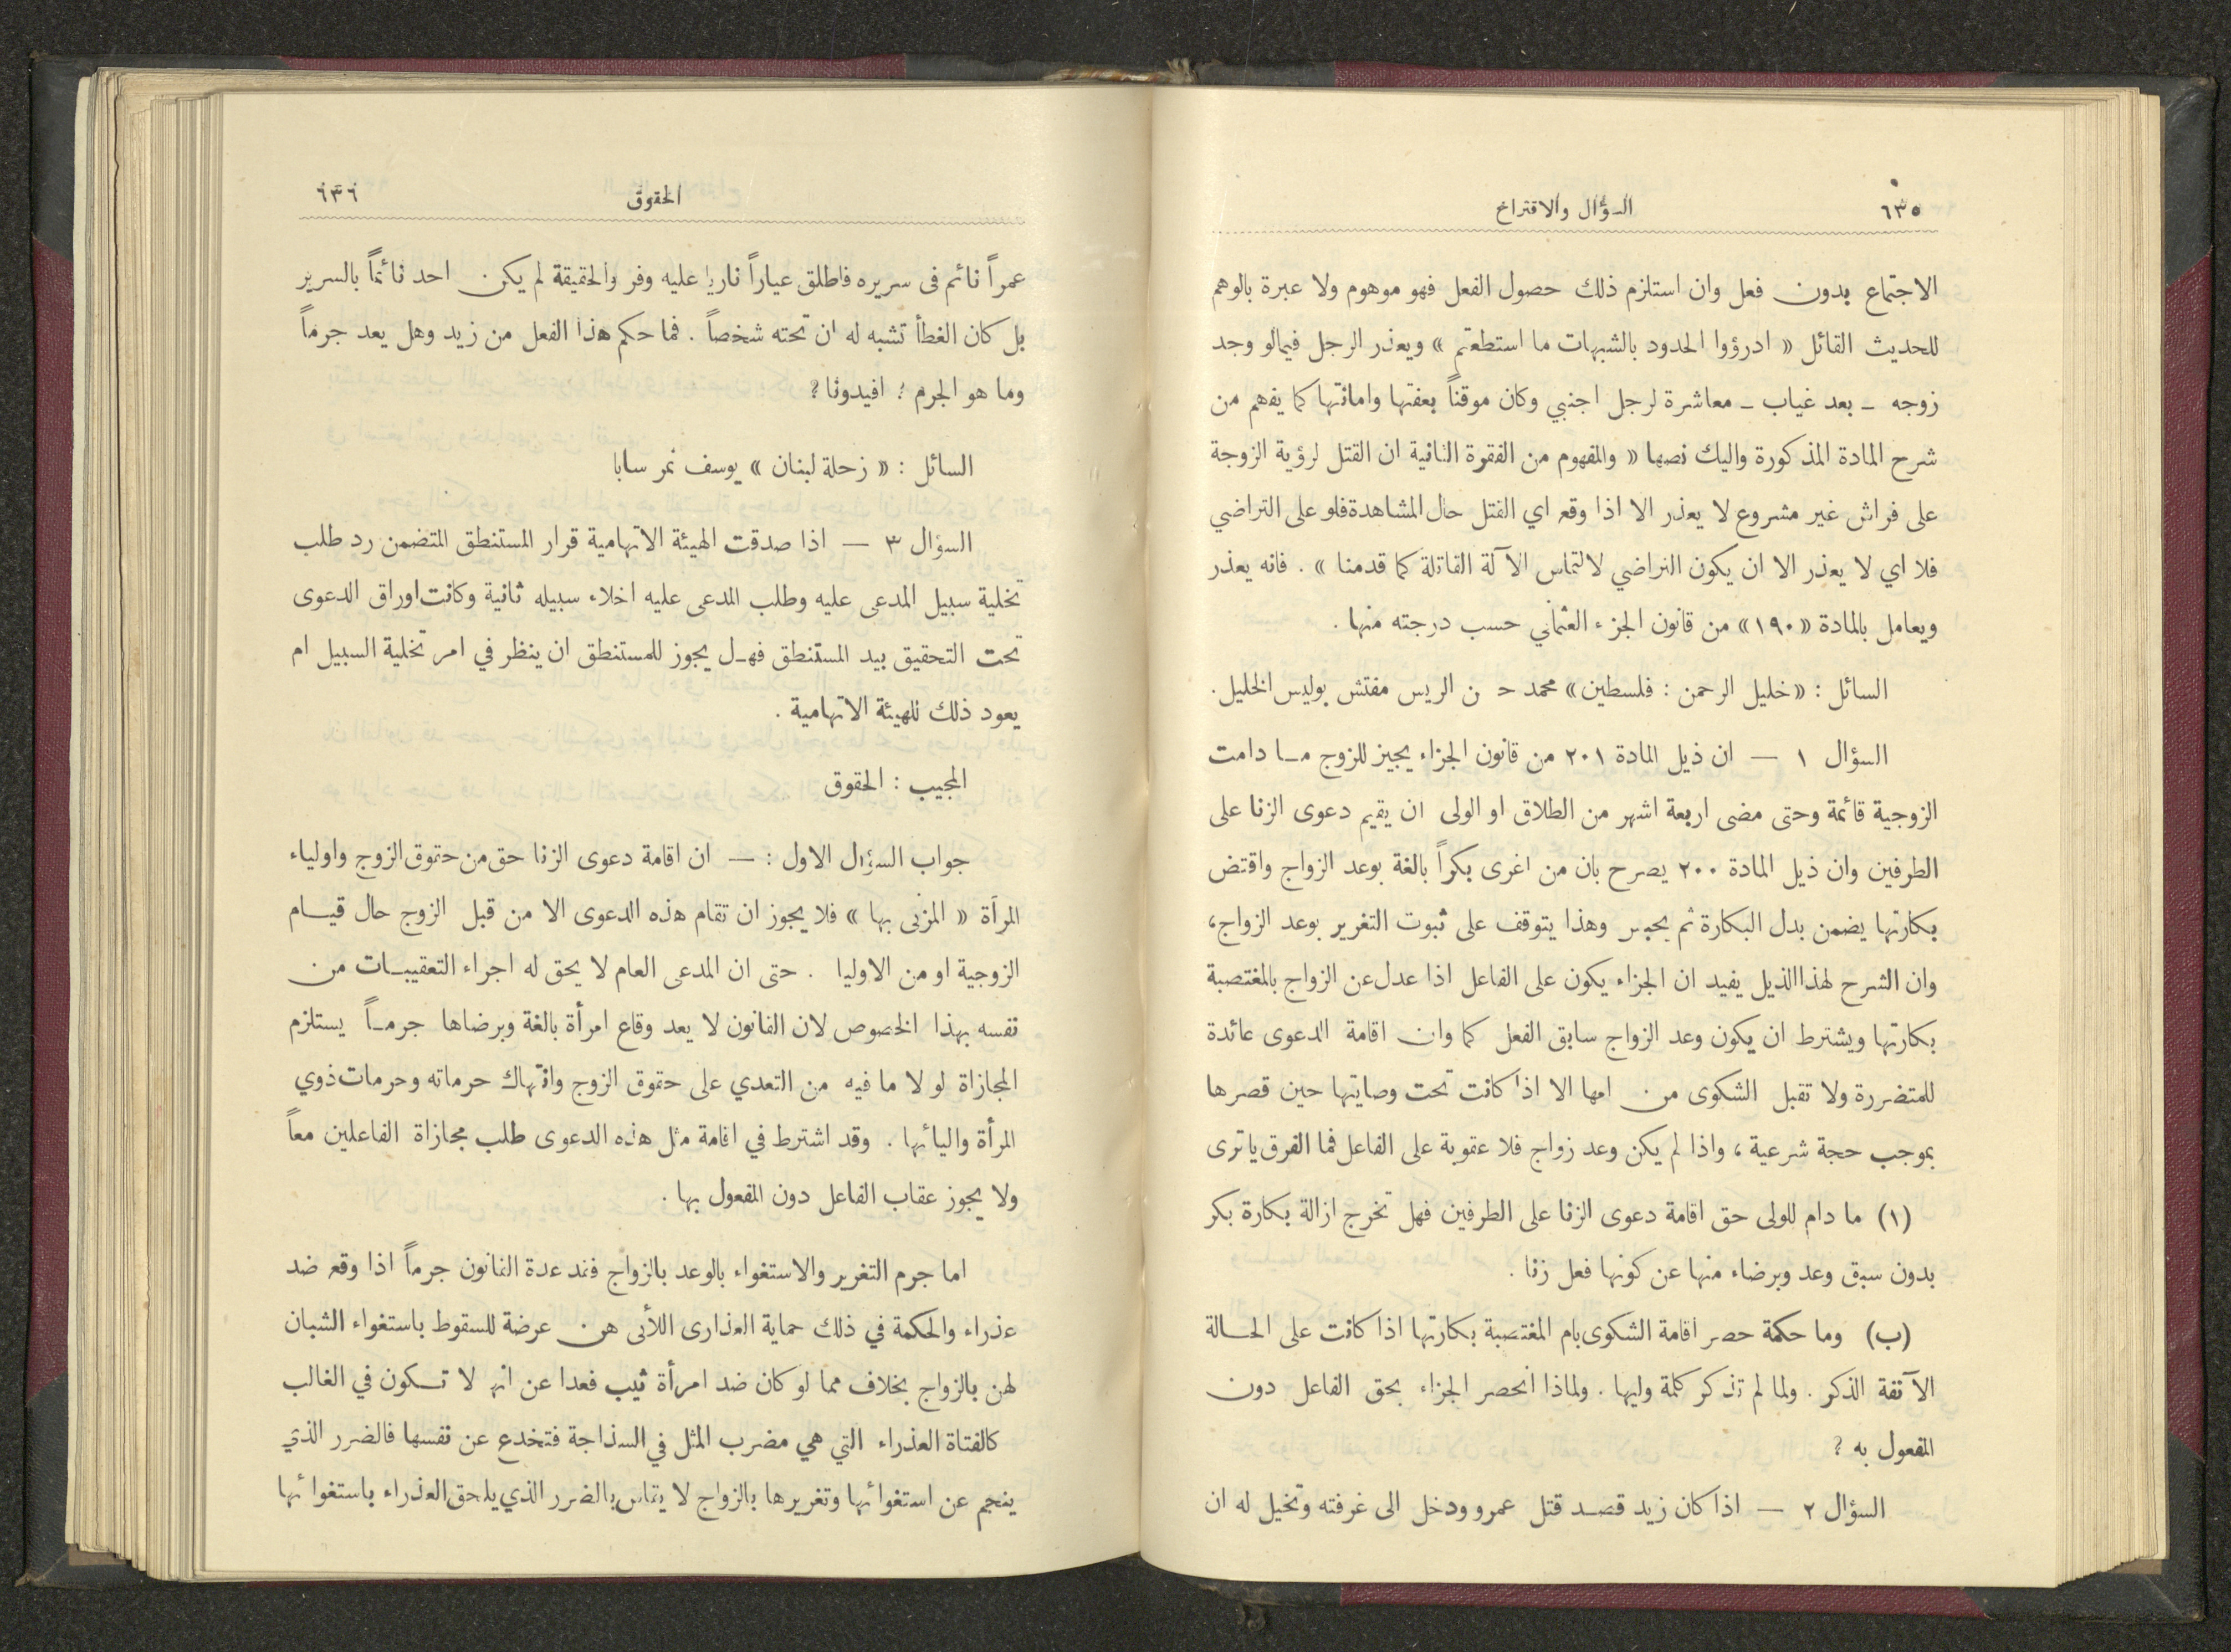 ٦٣٥
السؤال والاقتراح
الاجتماع بدون فعل وان استلزم ذلك حصول الفعل فهو موهوم ولا عبرة بالوهم
للحديث القائل « ادرؤوا الحدود بالشبهات ما استطعتم » ويعذر الرجل فيمالو وجد
زوجه ـ بعد غياب ـ معاشرة لرجل اجنبي وكان موقناً بعفتها وامانتها كما يفهم من
شرح المادة المذكورة واليك نصها « والمفهوم من الفقرة الثانية ان القتل لرؤية الزوجة
على فراش غير مشروع لا يعذر الا اذا وقع اي القتل حال المشاهدة فلو على التراضي
فلا اي لا يعذر الا ان يكون التراضي لالتماس الآلة القاتلة كما قدمنا » . فانه يعذر
ويعامل بالمادة « ١٩٠ » من قانون الجزء العثماني حسب درجته منها .
السائل : « خليل الرحمن : فلسطين » محمد حـ ن الريس مفتش بوليس الخليل .
السؤال ١ — ان ذيل المادة ٢٠١ من قانون الجزاء يجيز للزوج مـا دامت
الزوجية قائمة وحتى مضى اربعة اشهر من الطلاق او الولى ان يقيم دعوى الزنا على
الطرفين وان ذيل المادة ٢٠٠ يصرح بان من اغرى بكراً بالغة بوعد الزواج واقتض
بكارتها يضمن بدل البكارة ثم يحبس وهذا يتوقف على ثبوت التغرير بوعد الزواج ،
وان الشرح لهذا الذيل يفيد ان الجزاء يكون على الفاعل اذا عدل عن الزواج بالمغتصبة
بكارتها ويشترط ان يكون وعد الزواج سابق الفعل كما وان اقامة الدعوى عائدة
للمتضررة ولا تقبل الشكوى من امها الا اذا كانت تحت وصايتها حين قصرها
بموجب حجة شرعية ، واذا لم يكن وعد زواج فلا عقوبة على الفاعل فما الفرق يا ترى
(١) ما دام للولى حق اقامة دعوى الزنا على الطرفين فهل تخرج ازالة بكارة بكر
بدون سبق وعد وبرضاء منها عن كونها فعل زنا .
(ب) وما حكمة حصر اقامة الشكوى بام المغتصبة بكارتها اذا كانت على الحـالة
الآنفة الذكر . ولما لم تذكر كلمة وليها . ولماذا انحصر الجزاء بحق الفاعل دون
المفعول به ؟
السؤال ٢ — اذا كان زيد قصـد قتل عمرو ودخل الى غرفته وتخيل له ان
الحقوق
٦٣٦
عمراً نائم فى سريره فاطلق عياراً ناريا عليه وفر والحقيقة لم يكن احد نائماً بالسرير
بل كان الغطأ تشبه له ان تحته شخصاً . فما حكم هذا الفعل من زيد وهل يعد جرماً
وما هو الجرم ؛ افيدونا ؟
السائل : « زحلة لبنان » يوسف نمر سابا
السؤال ٣ — اذا صدقت الهيئة الاتهامية قرار المستنطق المتضمن رد طلب
تخلية سبيل المدعى عليه وطلب المدعى عليه اخلاء سبيله ثانية وكانت اوراق الدعوى
تحت التحقيق بيد المستنطق فهـل يجوز للمستنطق ان ينظر في امر تخلية السبيل ام
يعود ذلك للهيئة الاتهامية .
المجيب : الحقوق
جواب السؤال الاول : — ان اقامة دعوى الزنا حق من حقوق الزوج واولياء
المرأة « المزنى بها » فلا يجوز ان تقام هذه الدعوى الا من قبل الزوج حال قيـام
الزوجية او من الاوليا . حتى ان المدعى العام لا يحق له اجراء التعقيبـات من
نفسه بهذا الخصوص لان القانون لا يعد وقاع امرأة بالغة وبرضاها جرمـاً يستلزم
المجازاة لو لا ما فيه من التعدي على حقوق الزوج وانتهاك حرماته وحرمات ذوي
المرأة واليائها . وقد اشترط في اقامة مثل هذه الدعوى طلب مجازاة الفاعلين معاً
ولا يجوز عقاب الفاعل دون المفعول بها .
اما جرم التغرير والاستغواء بالوعد بالزواج فقد عده القانون جرماً اذا وقع ضد
عذراء والحكمة في ذلك حماية العذارى اللأتى هن عرضة للسقوط باستغواء الشبان
لهن بالزواج بخلاف مما لو كان ضد امرأة ثيب فعدا عن انها لا تـكون في الغالب
كالفتاة العذراء التي هي مضرب المثل في السذاجة فتخدع عن نفسها فالضرر الذي
ينجم عن استغوائها وتغريرها بالزواج لا يقاس بالضرر الذي يلحق العذراء باستغوائها